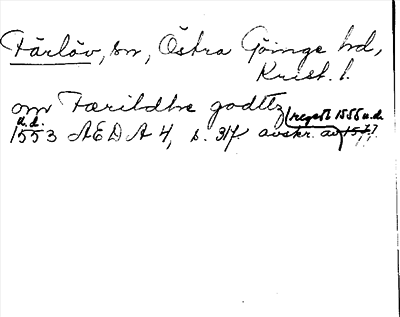 Färlöv, sn, Östra Göinge hd,
Krist. l.
om Færildhe godttz (regest 1556 u.d.
u.d.
1553 AEDA 4, s. 317 avskr. av 1577)